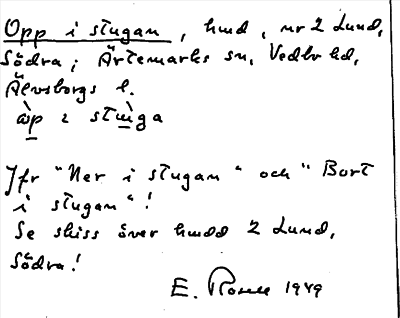 Opp i stugan, hmd, nr 2 Lund,
Södra; Ärtemarks sn, Vedbo hd,
Älvsborgs l.
òp i stùga
Jfr "Ner i stugan" och "Bort
i stugan"!
Se skiss över hmdd 2 Lund,
Södra!
E. 1949